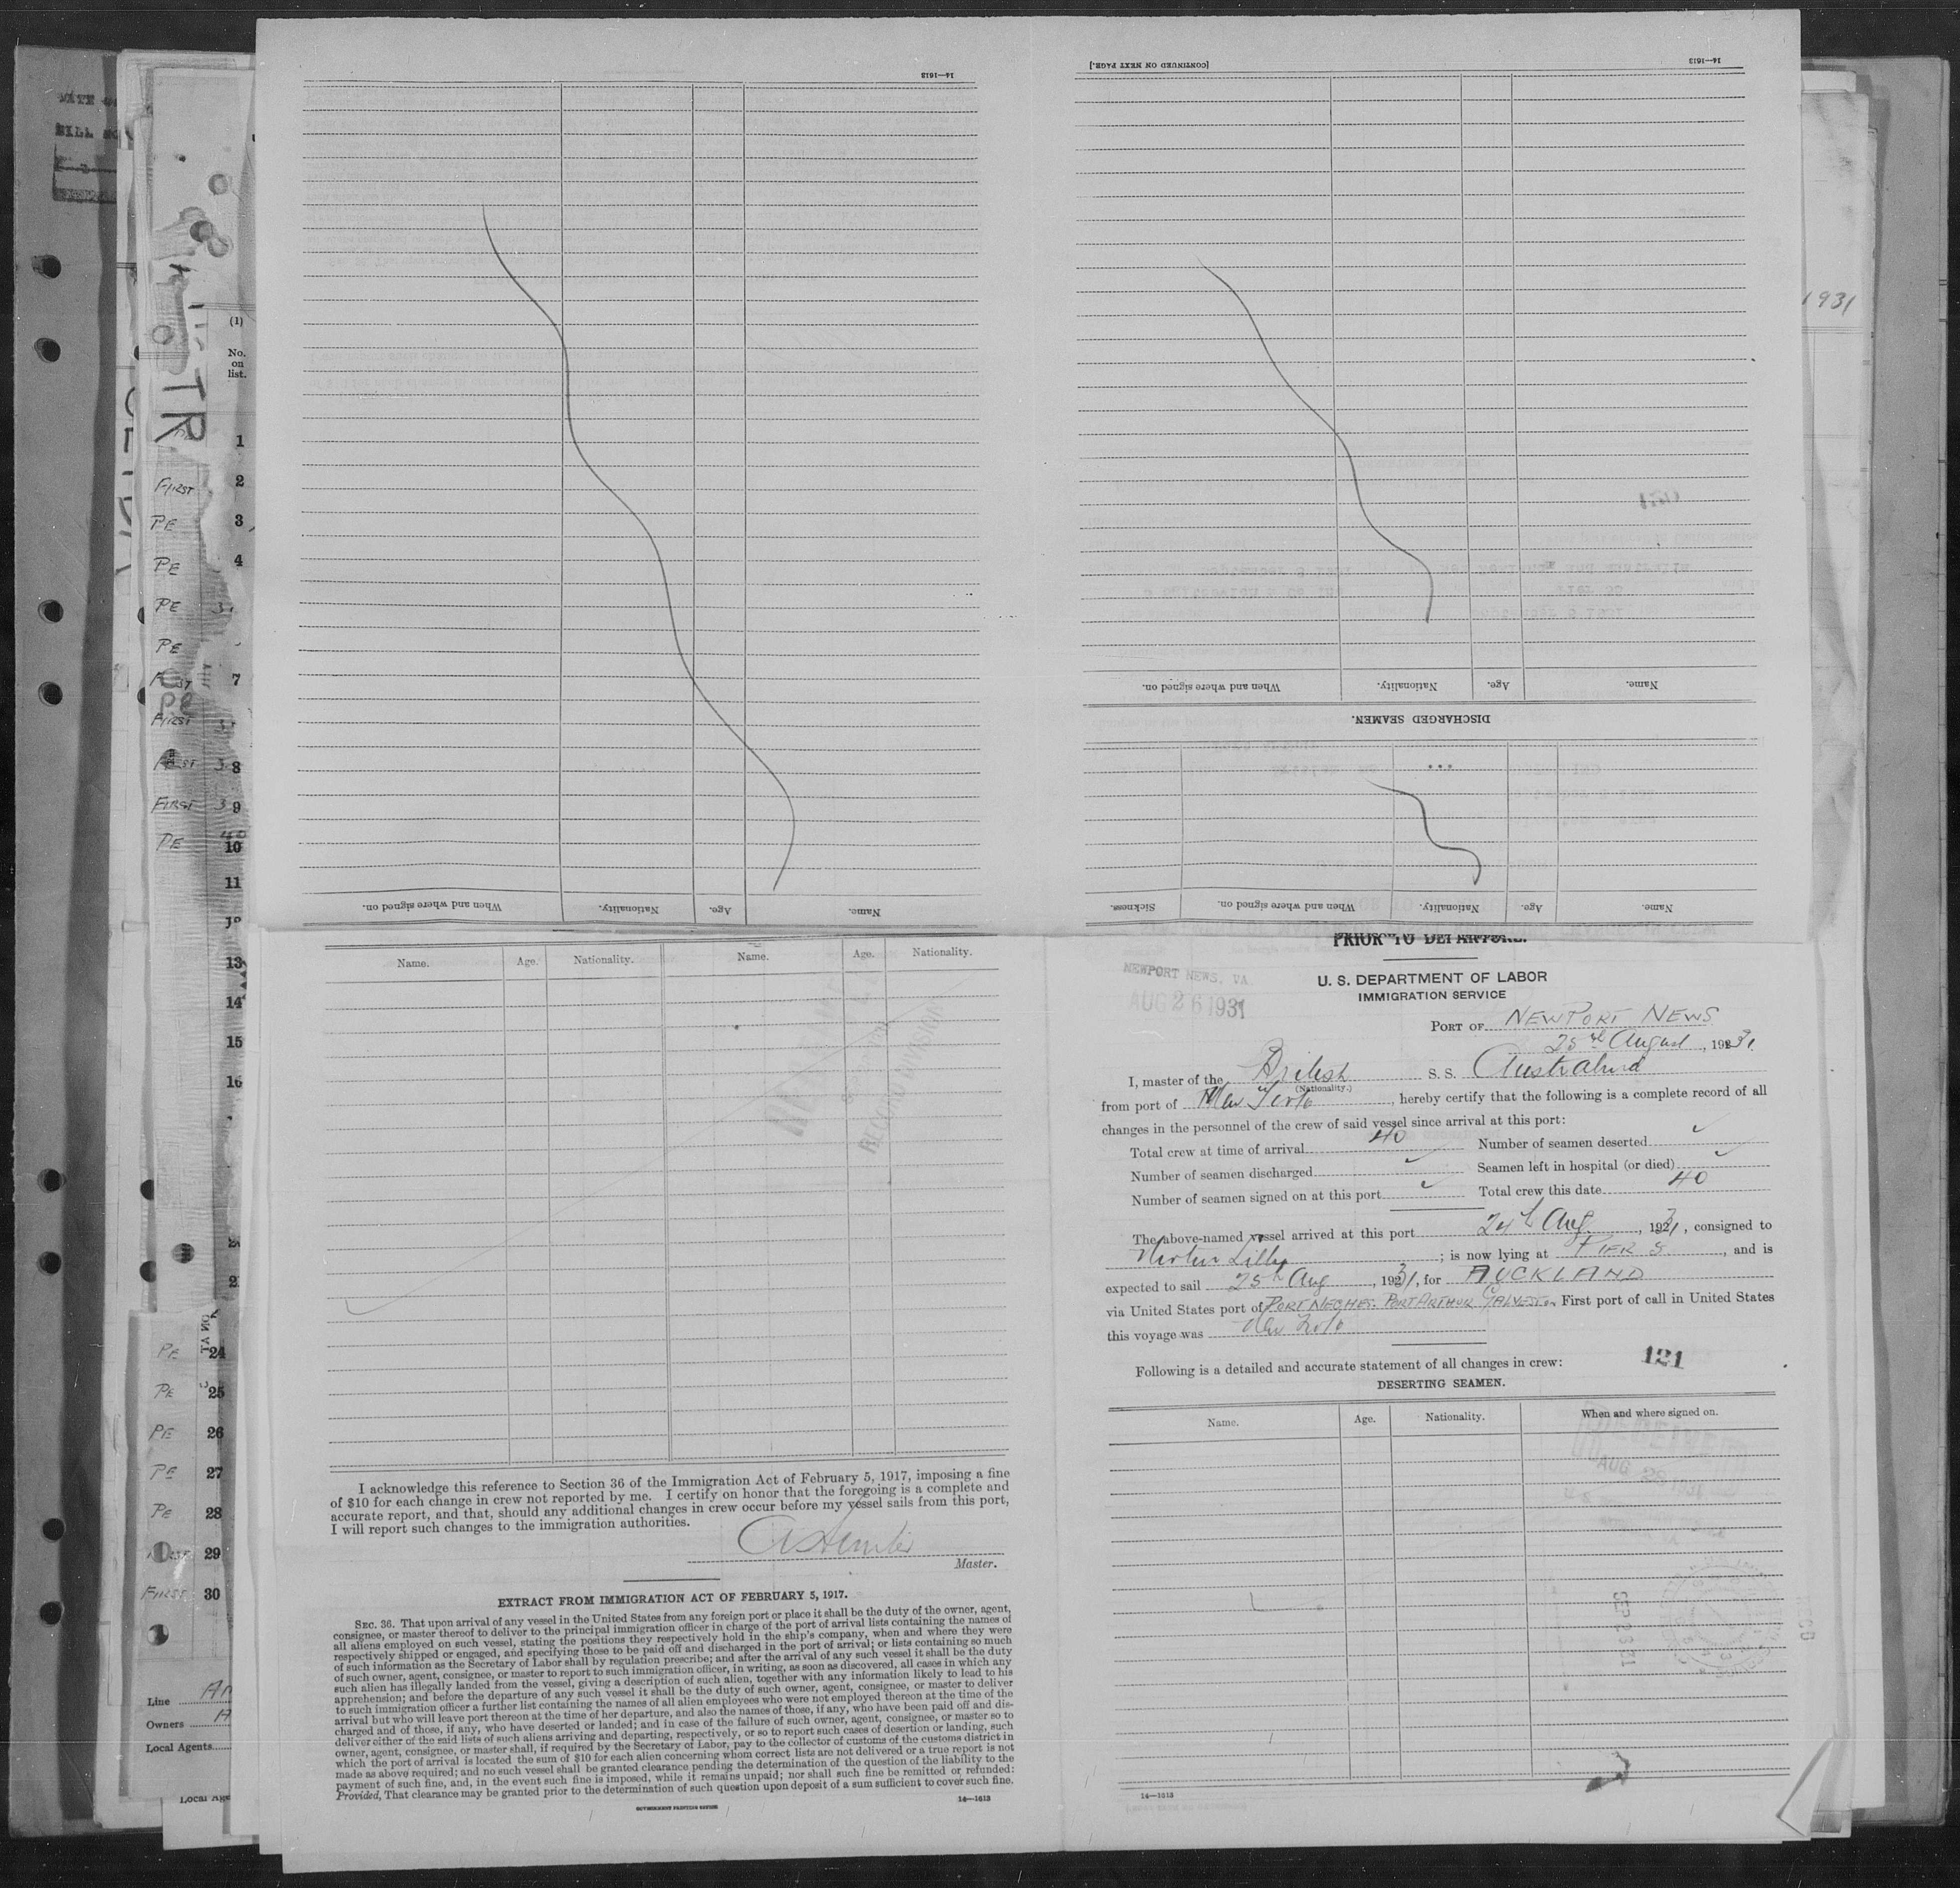 14—1613
When and where signed on.
Nationality.
Age.
Name.
[CONTINUED ON NEXT PAGE.]
14—1613
When and where signed on.
Nationality.
Age.
Name.
DISCHARGED SEAMEN.
Sickness.
When and where signed on.
Nationality.
Age.
Name.
1931
(1)
No.
on
list.
TR
1
FIRST 2
PE 3
PE 4
PE
PE
7
FIRST
8
FIRST 9
PE 10
11
13
14
15
16
PE 24
PE 25
PE 26
PE 27
PE 28
29
FIRST 30
Line
Owners
Local Agents
Name.
Age.
Nationality.
Name.
Age.
Nationality.
I acknowledge this reference to Section 36 of the Immigration Act of February 5, 1917, imposing a fine
of $10 for each change in crew not reported by me. I certify on honor that the foregoing is a complete and
accurate report, and that, should any additional changes in crew occur before my vessel sails from this port,
I will report such changes to the immigration authorities.
Master.
EXTRACT FROM IMMIGRATION ACT OF FEBRUARY 5, 1917.
SEC. 36. That upon arrival of any vessel in the United States from any foreign port or place it shall be the duty of the owner, agent,
consignee, or master thereof to deliver to the principal immigration officer in charge of the port of arrival lists containing the names of
all aliens employed on such vessel, stating the positions they respectively hold in the ship's company, when and where they were
respectively shipped or engaged, and specifying those to be paid off and discharged in the port of arrival; or lists containing so much
of such information as the Secretary of Labor shall by regulation prescribe; and after the arrival of any such vessel it shall be the duty
of such owner, agent, consignee, or master to report to such immigration officer, in writing, as soon as discovered, all cases in which any
such alien has illegally landed from the vessel, giving a description of such alien, together with any information likely to lead to his
apprehension; and before the departure of any such vessel it shall be the duty of such owner, agent, consignee, or master to deliver
to such immigration officer a further list containing the names of all alien employees who were not employed thereon at the time of the
arrival but who will leave port thereon at the time of her departure, and also the names of those, if any, who have been paid off and dis-
charged and of those, if any, who have deserted or landed; and in case of the failure of such owner, agent, consignee, or master so to
deliver either of the said lists of such aliens arriving and departing, respectively, or so to report such cases of desertion or landing, such
owner, agent, consignee, or master shall, if required by the Secretary of Labor, pay to the collector of customs of the customs district in
which the port of arrival is located the sum of $10 for each alien concerning whom correct lists are not delivered or a true report is not
made as above required; and no such vessel shall be granted clearance pending the determination of the question of the liability to the
payment of such fine, and, in the event such fine is imposed, while it remains unpaid; nor shall such fine be remitted or refunded:
Provided, That clearance may be granted prior to the determination of such question upon deposit of a sum sufficient to cover such fine.
GOVERNMENT PRINTING OFFICE
14—1613
PRIOR TO DEPARTURE.
NEWPORT NEWS, VA.
AUG 26 1931
U. S. DEPARTMENT OF LABOR
IMMIGRATION SERVICE
PORT OF NEWPORT NEWS
25th August, 1931.
I, master of the British S. S. Australind
(Nationality.)
from port of New York, hereby certify that the following is a complete record of all
changes in the personnel of the crew of said vessel since arrival at this port:
Total crew at time of arrival 40
Number of seamen deserted
Number of seamen discharged
Seamen left in hospital (or died)
Number of seamen signed on at this port
Total crew this date 40
The above-named vessel arrived at this port 24th Aug, 1931, consigned to
; is now lying at PIER 8, and is
expected to sail 25th Aug, 1931, for AUCKLAND
via United States port of PORT NECHES. PORT ARTHUR GALVESTON First port of call in United States
this voyage was New York
Following is a detailed and accurate statement of all changes in crew: 121
DESERTING SEAMEN.
Name.
Age.
Nationality.
When and where signed on.
RECEIVED
AUG 28 1931
SEP 2 31
14—1613